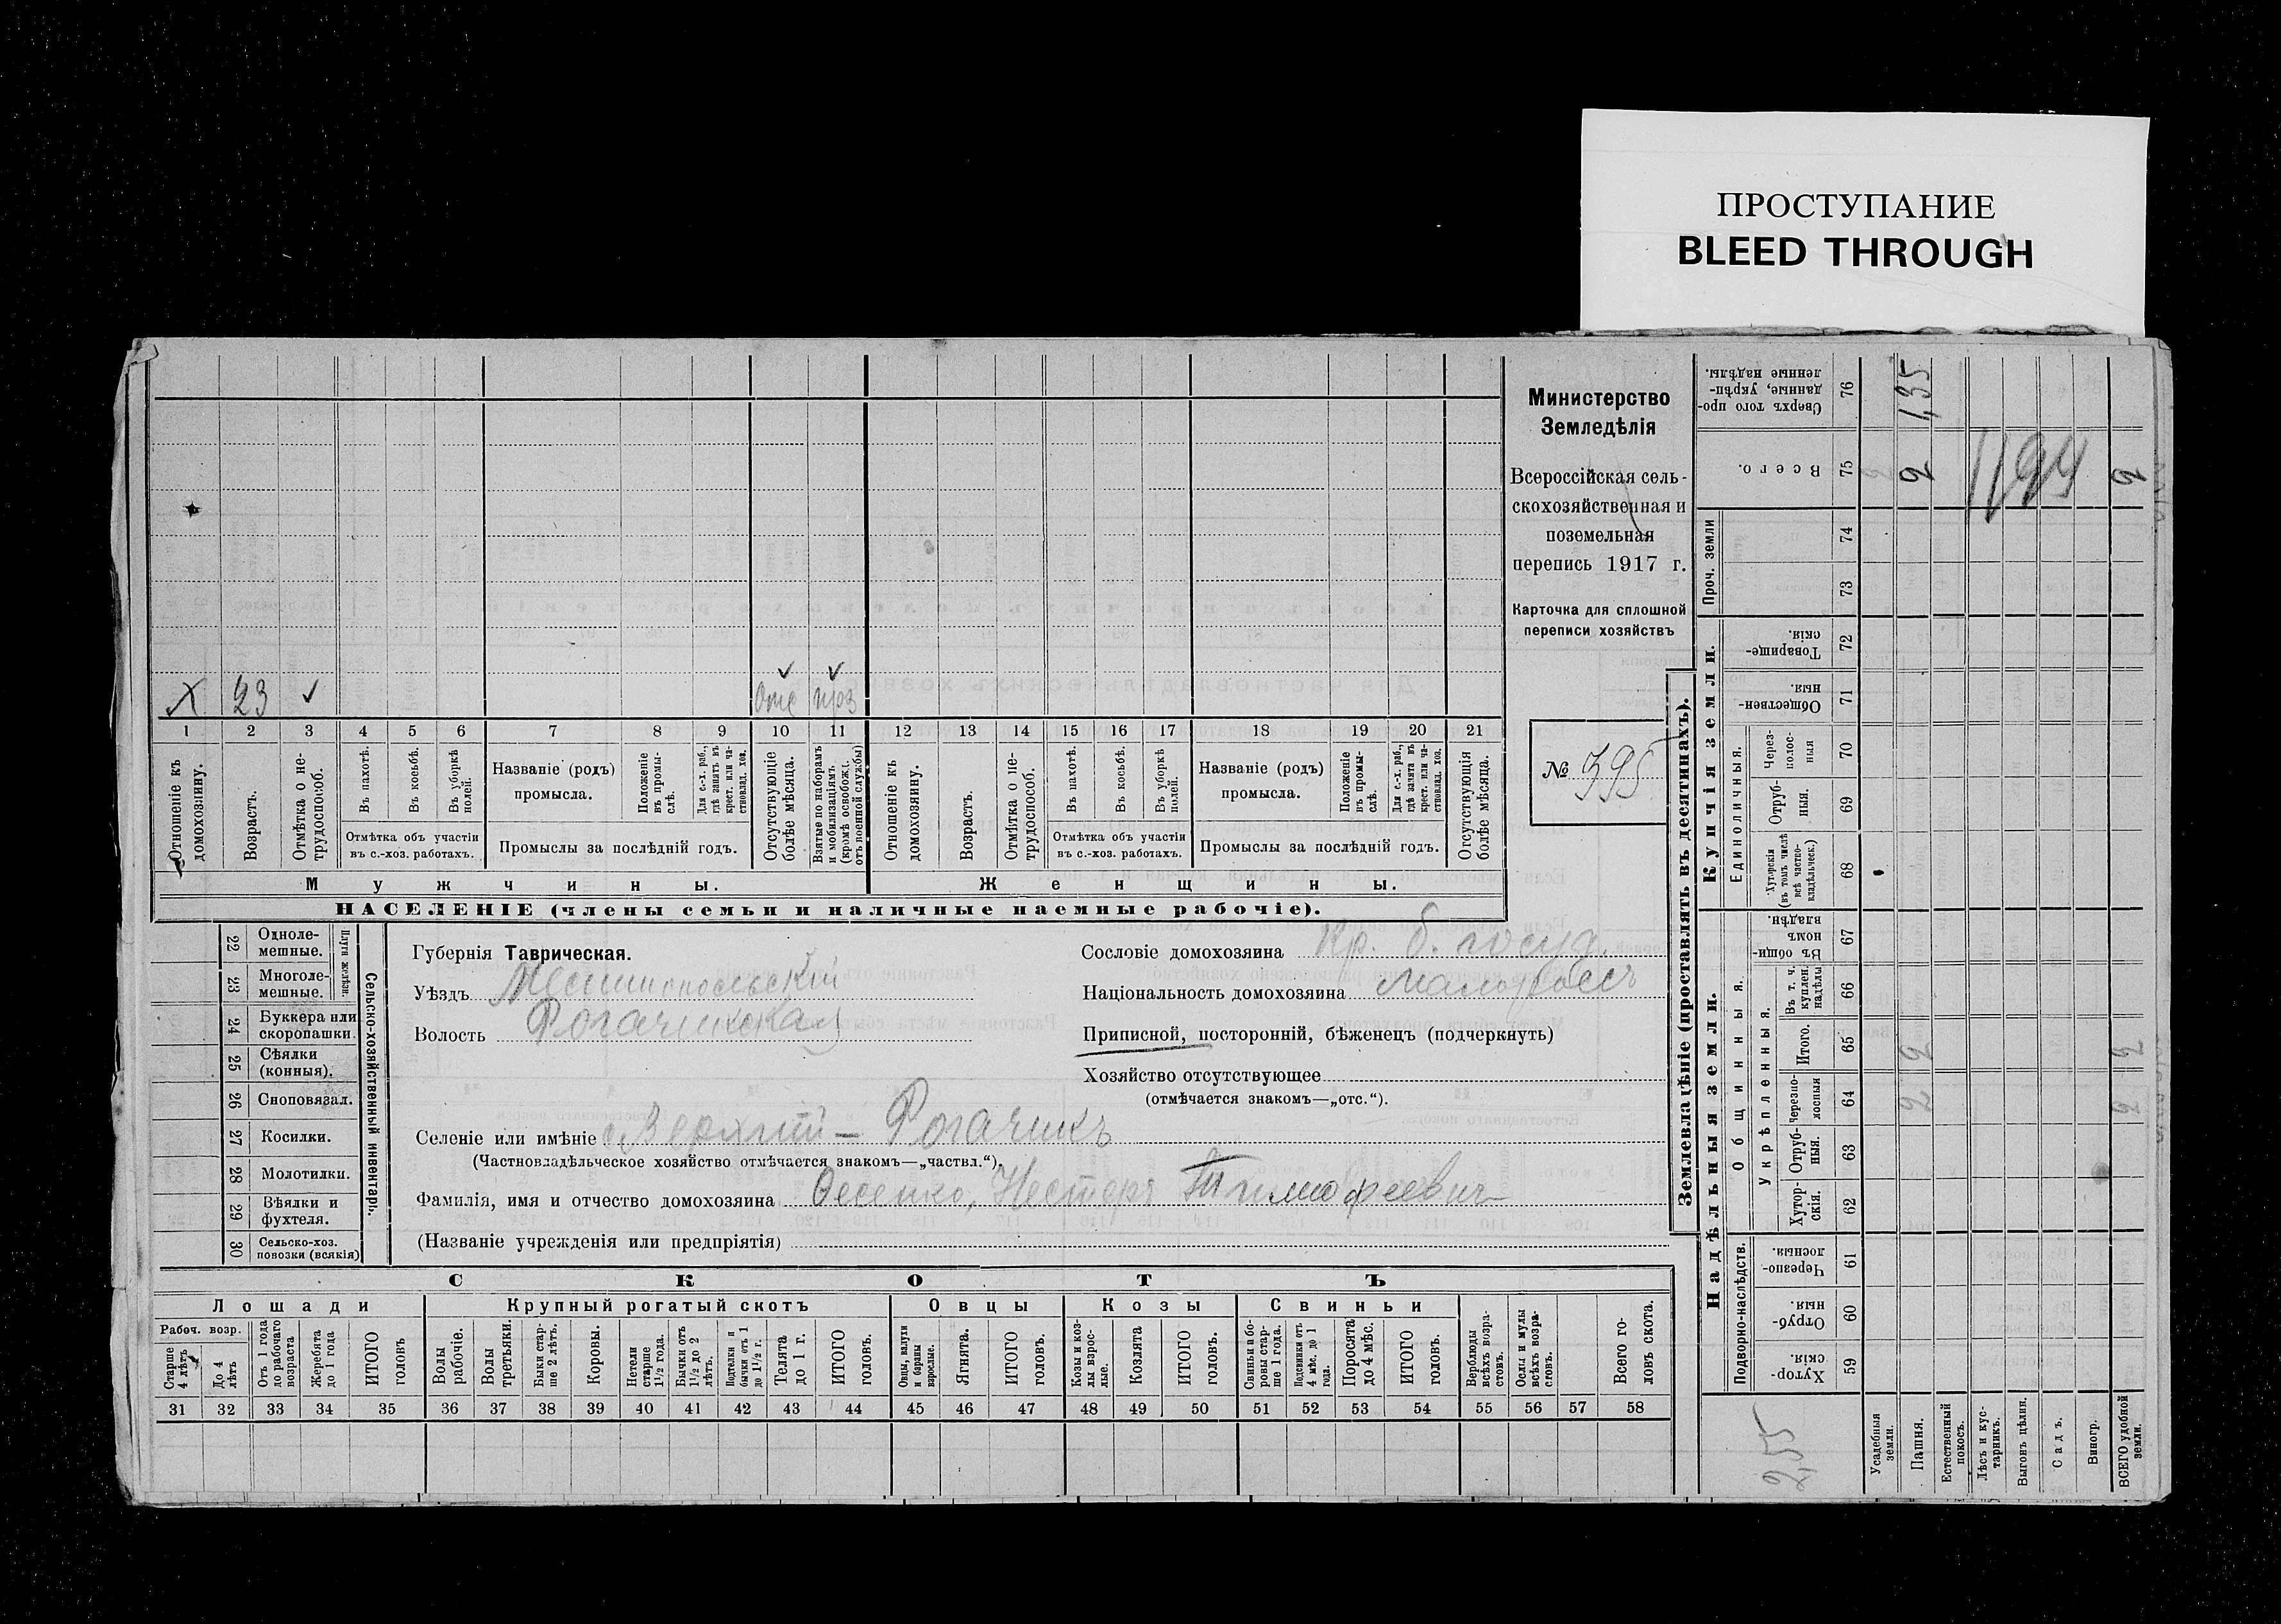 ПРОСТУПАНИЕ
BLEED THROUGH
Министерство
Земледѣлія
Всероссійская сель-
скохозяйственная и
поземельная
перепись 1917 г.
Карточка для сплошной
переписи хозяйствъ
№ 395
Х 23 ✓ Отс ✓ Приз ✓
1 2 3 4 5 6 7 8 9 10 11 12 13 14 15 16 17 18 19 20 21
Отношеніе къ домохозяину.
Возрастъ.
Отмѣтка о не-трудоспособ.
Въ пахотѣ.
Въ косьбѣ.
Въ уборкѣ полей.
Отмѣтка объ участіи
въ с.-хоз. работахъ.
Названіе (родъ)
промысла.
Положеніе въ промы-слѣ.
Для с.-х. раб., гдѣ занятъ въ крест. или ча-стновлад. хоз.
Промыслы за послѣдній годъ.
Отсутствующіе болѣе мѣсяца.
Взятые по наборамъ и мобилизаціямъ (кромѣ освобожд. отъ военной службы)
Отношеніе къ домохозяину.
Возрастъ.
Отмѣтка о не-трудоспособ.
Въ пахотѣ.
Въ косьбѣ.
Въ уборкѣ полей.
Отмѣтка объ участіи
въ с.-хоз. работахъ.
Названіе (родъ)
промысла.
Положеніе въ промы-слѣ.
Для с.-х. раб., гдѣ занята въ крест. или ча-стновлад. хоз.
Промыслы за послѣдній годъ.
Отсутствующія болѣе мѣсяца.
Мужчины.
Женщины.
НАСЕЛЕНІЕ (члены семьи и наличные наемные рабочіе).
22 Однолемешные.
23 Многолемешные.
Плуги желѣзн.
24 Буккера или скоропашки.
25 Сѣялки (конныя).
26 Сноповязал.
27 Косилки.
28 Молотилки.
29 Вѣялки и фухтеля.
30 Сельско-хоз. повозки (всякія)
Сельско-хозяйственный инвентарь.
Губернія Таврическая.
Уѣздъ Мелитопольскій
Волость Рогачикская
Сословіе домохозяина Кр. б. госуд.
Національность домохозяина малороссъ
Приписной, посторонній, бѣженецъ (подчеркнуть)
Хозяйство отсутствующее
(отмѣчается знакомъ—„отс.“).
Селеніе или имѣніе с. Верхній – Рогачикъ
(Частновладѣльческое хозяйство отмѣчается знакомъ—„частвл.“).
Фамилія, имя и отчество домохозяина Нестеръ Тимофеевич
(Названіе учрежденія или предпріятія)
СКОТЪ
Лошади
Крупный рогатый скотъ
Овцы
Козы
Свиньи
Рабоч. возр.
Старше 4 лѣтъ
До 4 лѣтъ
Отъ 1 года до рабочаго возраста
Жеребята до 1 года
ИТОГО головъ
Волы рабочіе.
Волы третьяки.
Быки стар-ше 2 лѣтъ.
Коровы.
Нетели старше 1½ года.
Бычки отъ 1½ до 2 лѣтъ.
Подтелки и бычки отъ 1 до 1½ г.
Телята до 1 г.
ИТОГО головъ.
Овцы, валухи и бараны взрослые.
Ягнята.
ИТОГО головъ.
Козы и коз-лы взрос-лые.
Козлята
ИТОГО головъ.
Свиньи и бо-ровы стар-ше 1 года.
Подсвинки отъ 4 мѣс. до 1 года.
Поросята до 4 мѣс.
ИТОГО головъ.
Верблюды всѣхъ возра-стовъ.
Ослы и мулы всѣхъ возра-стовъ.
Всего го-ловъ скота.
31 32 33 34 35 36 37 38 39 40 41 42 43 44 45 46 47 48 49 50 51 52 53 54 55 56 57 58
Землевладѣніе (проставлять въ десятинахъ).
Надѣльныя земли.
Купчія земли.
Проч. земли
Подворно-наслѣдств.
Общинныя.
Укрѣпленныя.
Единоличныя.
Хутор-скія. 59
Отруб-ныя. 60
Черезпо-лосныя. 61
Хутор-скія. 62
Отруб-ныя. 63
Черезпо-лосныя 64
Итого. 65
Въ т. ч. куплен. надѣлы 66
Въ общи-номъ владѣн. 67
Хуторскія (въ томъ числѣ всѣ частно-владѣльческ.) 68
Отруб-ныя. 69
Через-полос-ныя 70
Обществен-ныя. 71
Товарище-скія. 72
73
74
Всего. 75
Сверхъ того про-данные, укрѣп-ленные надѣлы. 76
Усадебныя земли.
Пашня. 2 2 2 1,35
Естественный покосъ.
Лѣсъ и кус-тарникъ.
Выгонъ цѣлин.
Садъ.
Виногр.
ВСЕГО удобной земли. 2 2 2
1194
2,55